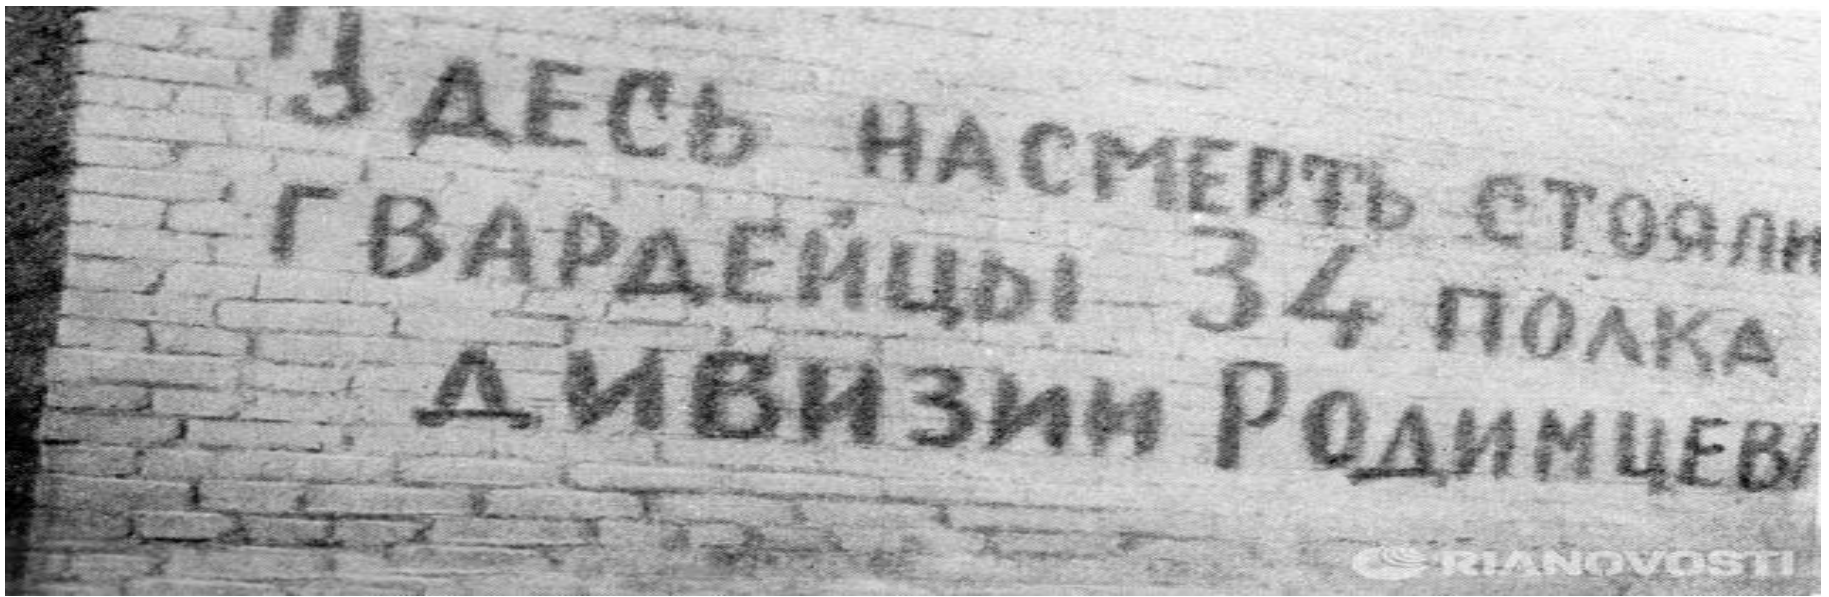 Здесь насмерть стояли
гвардейцы 34 полка
дивизии Родимцева
RIANOVOSTI